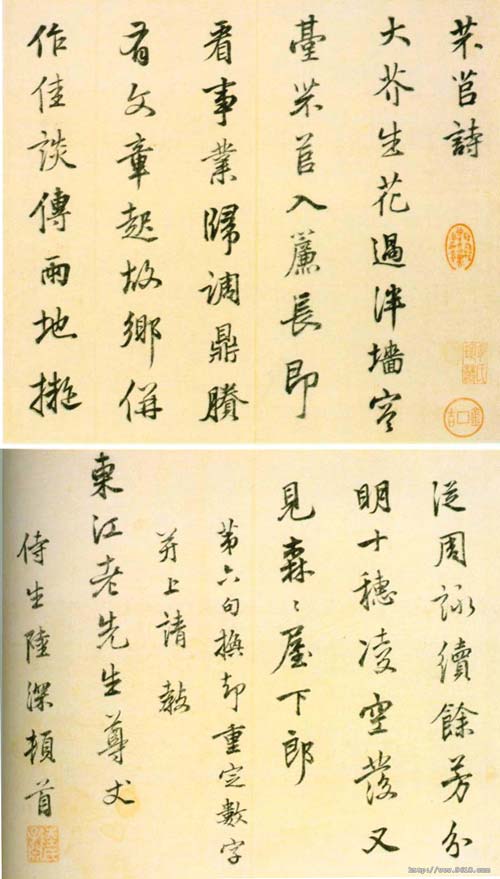 芣苢詩
大芥生花過泮墻宮
臺芣苢入簾長即
看事業歸調鼎賸
有文章起故鄉併
作佳談傳兩地擬
從周詠續餘芳分
明十穗凌空發又
見森〻屋下郎
第六句換却重定數字
并上請教
東江老先生尊丈
侍生陸深頓首
http://www.9610.com